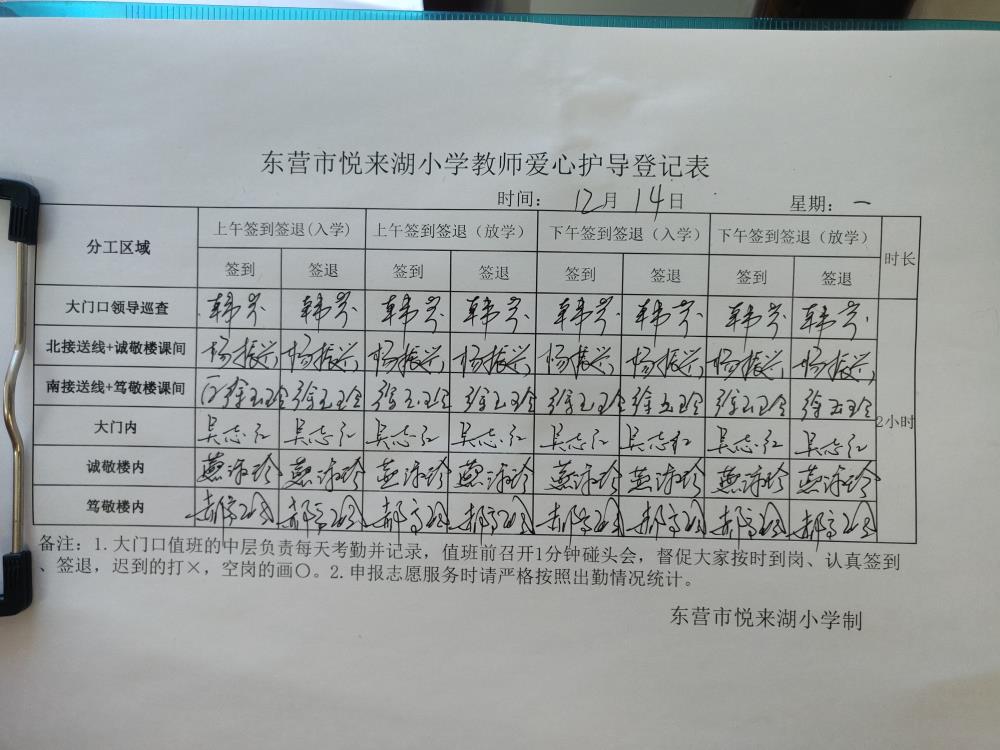 东营市悦来湖小学教师爱心护导登记表
时间: 12月14日 星期: 一
分工区域 上午签到签退(入学) 上午签到签退（放学） 下午签到签退（入学） 下午签到签退（放学） 时长
签到 签退 签到 签退 签到 签退 签到 签退
大门口领导巡查 韩芳 韩芳 韩芳 韩芳 韩芳 韩芳 韩芳 韩芳
北接送线+诚敬楼课间 杨振兴 杨振兴 杨振兴 杨振兴 杨振兴 杨振兴 杨振兴 杨振兴
南接送线+笃敬楼课间 徐玉玲 徐玉玲 徐玉玲 徐玉玲 徐玉玲 徐玉玲 徐玉玲 徐玉玲 2小时
大门内 吴志红 吴志红 吴志红 吴志红 吴志红 吴志红 吴志红 吴志红
诚敬楼内
笃敬楼内
备注：1.大门口值班的中层负责每天考勤并记录，值班前召开1分钟碰头会，督促大家按时到岗、认真签到
、签退，迟到的打×，空岗的画〇。2.申报志愿服务时请严格按照出勤情况统计。
东营市悦来湖小学制